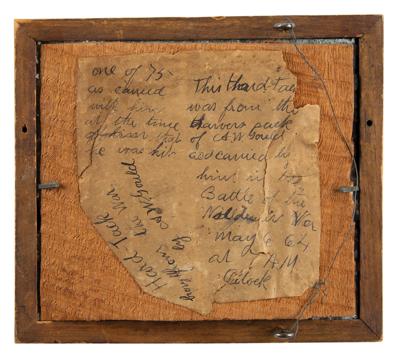 one of 75
as carried
with him
at the time
he was hit
This Hard Tack
was from the
Harvers sack
of A W Gould
as carried by
him in the
Battle of the
Wilderness Va
May 6 64
at 7 AM
O'clock
Hard Tack
by A W Gould